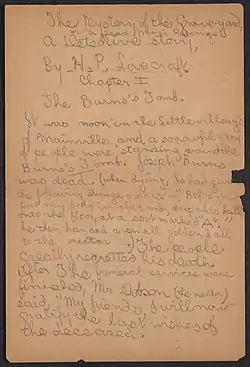 The Mystery of the Grave-yard
or "a dead man's Revenge"
A Detective story,
By H. P. Lovecraft
Chapter I
The Burns's Tomb.
It was noon in the little village
of Mainville, and a sorrowful group
of people were standing around the
Burns's Tomb. Joseph Burns
was dead. (when dying, he had given
the following strange orders:—"Before you
put my body in the tomb, drop this ball
onto the floor, at a spot marked "A"."
he then handed a small golden ball
to the rector.) The people
greatly regretted his death.
After The funeral services were
finished, Mr Dobson (the rector)
said, "My friends, I will now
gratify the last wishes of
the deceased.